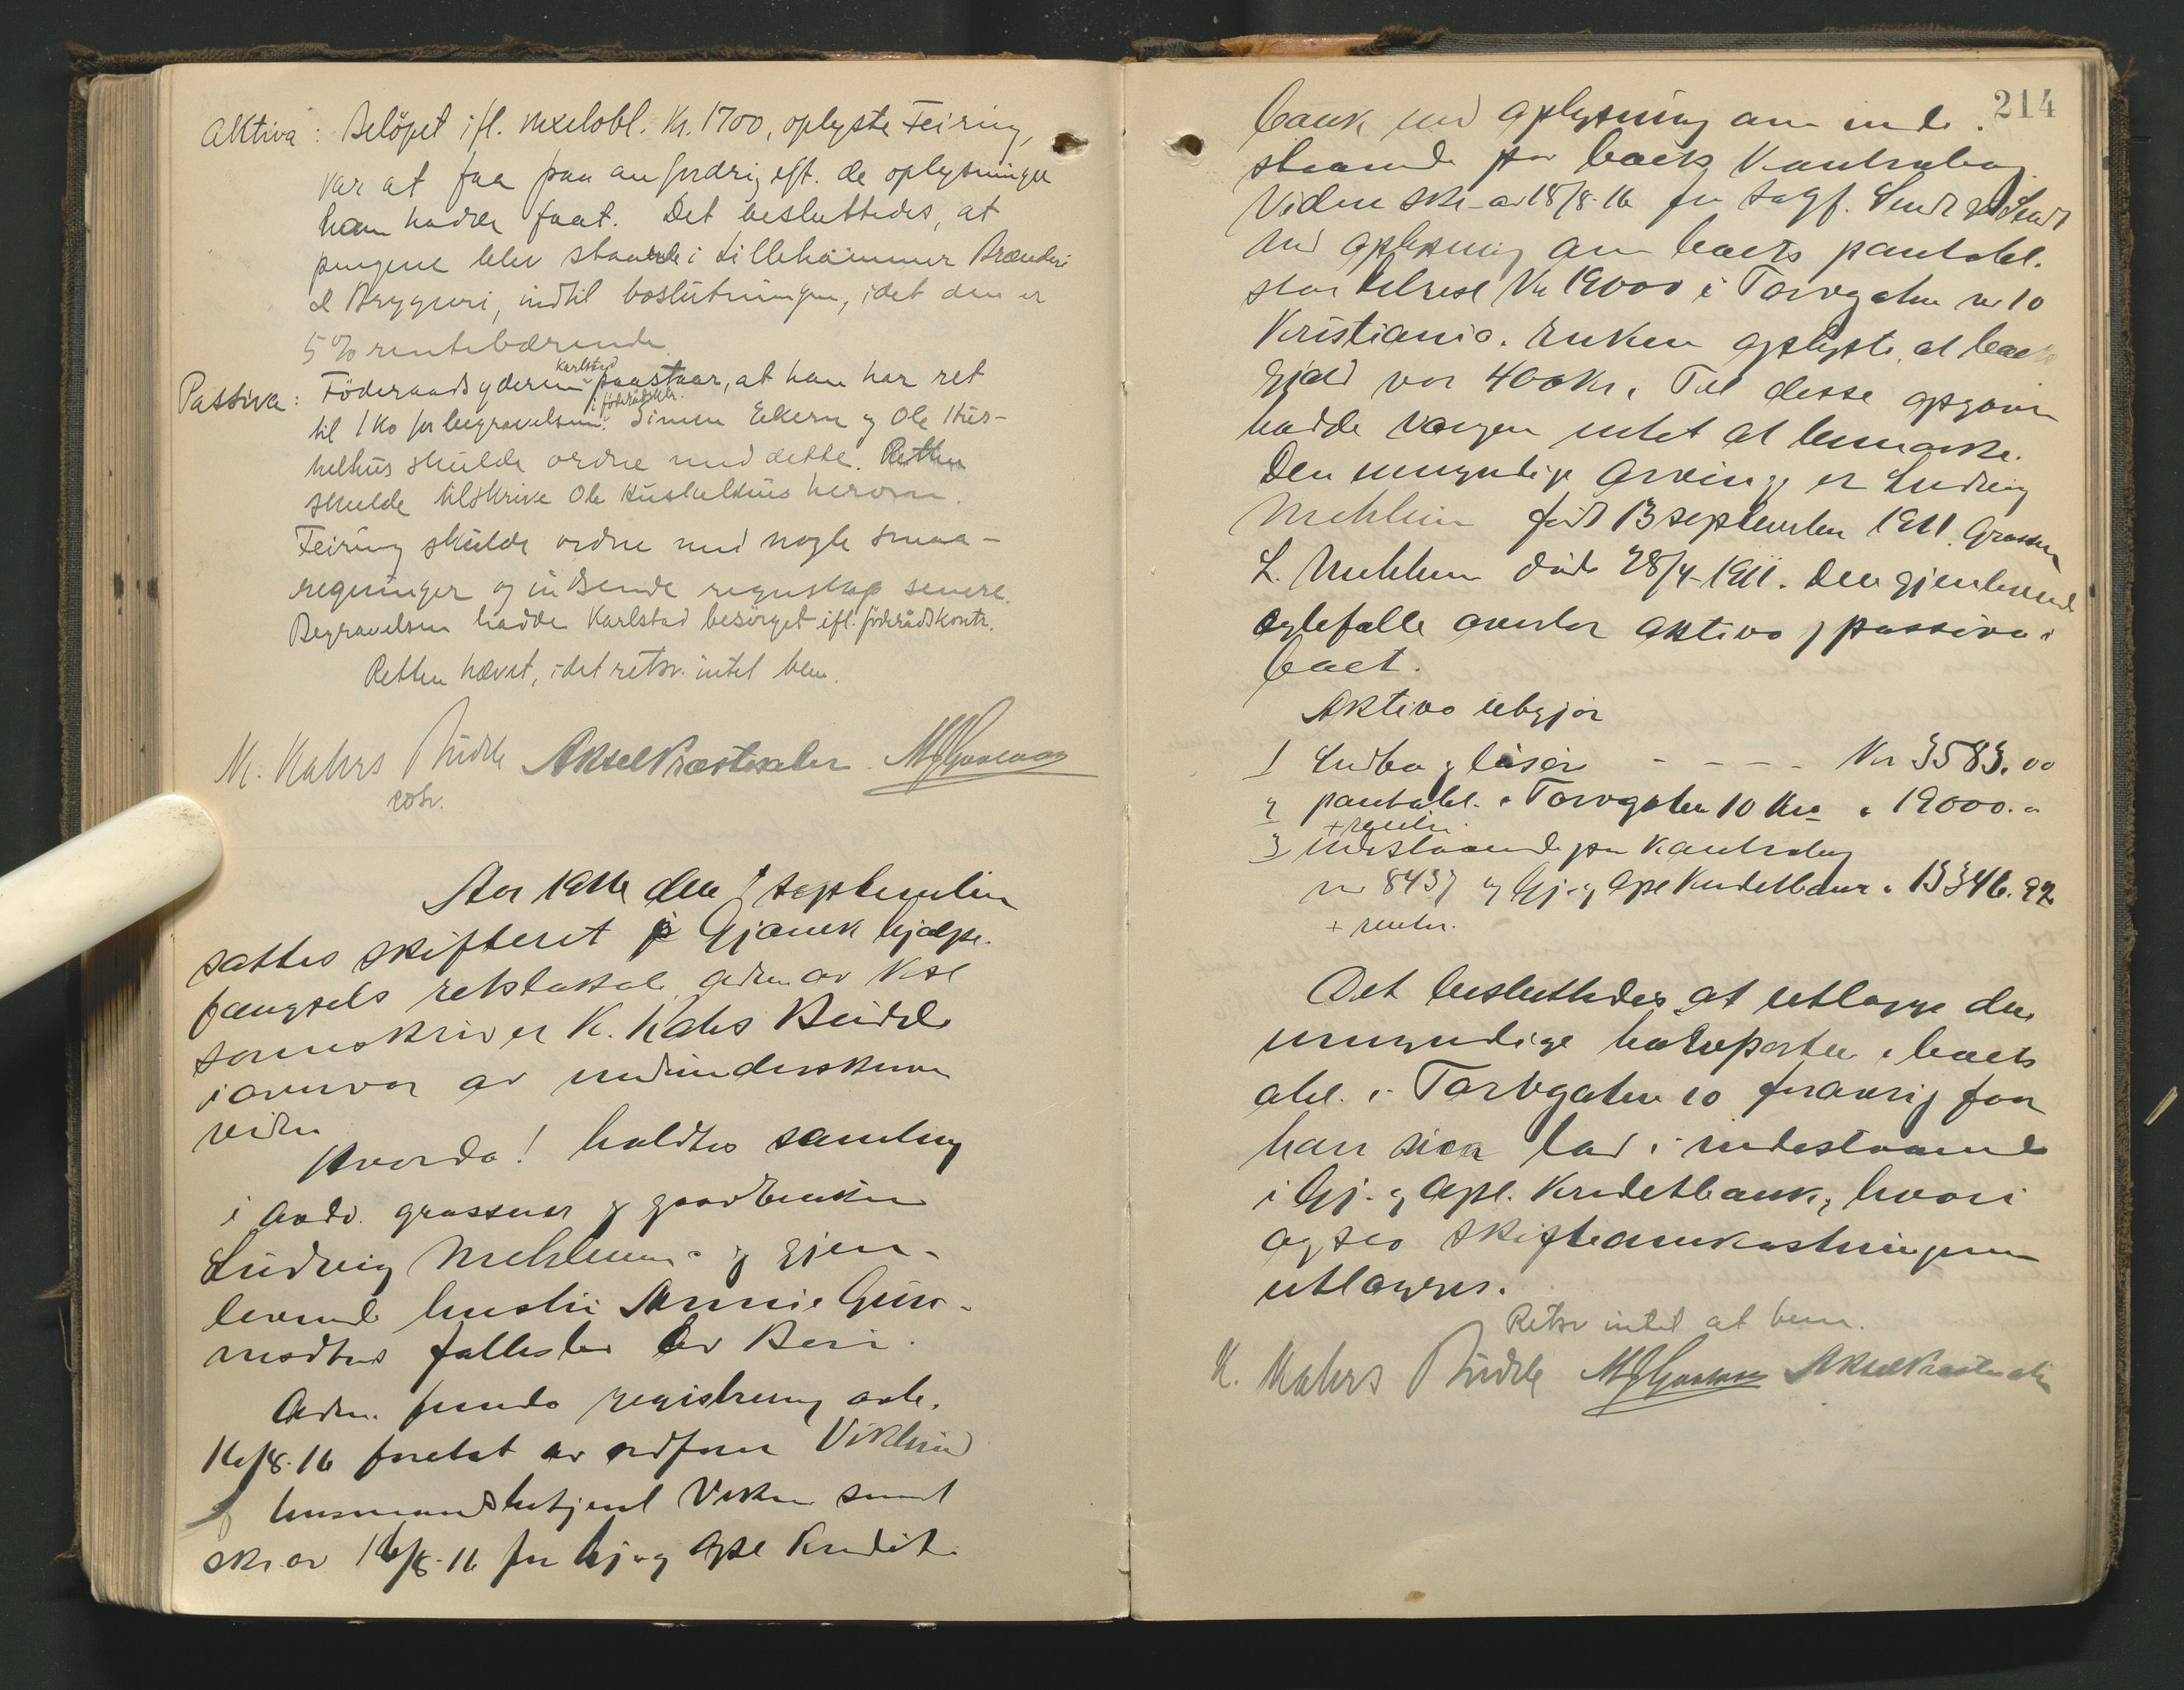 Aktiva: Beløpet ifl. vexelobl. Kr. 1700, oplyste Feiring,
var at faa paa anfordring eft. de oplysninger
han hadde faat. Det besluttedes, at
pengene blev staaende i Lillehammer Brænderi
& Bryggeri, indtil boslutningen, idet den er
5% rentebærende
Passiva: Föderaadsyderen Karlstad paastaar, at han har ret
til 1 ko for begravelsen i föderådsktr. Simen Ekern og Ole Hus-
skulde ordne med dette. Retten
skulde tilskrive Ole herom.
Feiring skulde ordne med nogle smaa-
regninger og indsende regnskap senere.
Begravelsen hadde Karlstad besörget ifl. föderådskontr.
Retten hævet, idet retsv. intet bem.
K. Kahrs Budde Aksel Præsteseter
cotr.
Aar 1916 den 7 september
sattes skifteret i Gjøvik hjælpe-
fængsels retslokale adm. av kst
sorenskriver K. Kahrs Budde
i overvær av medunderskrevne
vidner
Hvorda! holdtes samling
i avd. grosserer og gaardbruker
Ludvig Mehlum og gjen-
levende hustru Annie
fællesbo av Beri.
Adm. fremla registrering avh.
16/8-16 foretat av ordfører Viklund
og lensmandsbetjent Viken samt
skr. av 16/8-16 fra Gj. og Opl. Kredit-
214
bank med oplysning om inde-
staaende paa boets Kontrabog
Viden skr. av 18/8-16 fra sagf.
med oplysning om boets pantobl.
stor Kr 19000 i Torvgaten nr 10
Kristiania. Enken oplyste, at boets
gjæld var 400 Kr. Til desse opgaver
hadde værgen intet at bemærke.
Den umyndige arving er Ludvig
Mehlum født 13 september 1911. Grosserer
L. Mehlum døde 28/4-1911. Den gjenlevende
egtefælle overtar aktiva og passiva i
boet.
Aktiva utgjør
1 Indbo og løsøre - - - - Kr 3583.00
2 pantobl. i Torvgaten 10 Kra " 19000.-
+ renter
3 indestaaende paa Kontrabog
nr 8437 i Gj. og Opl. Kreditbank " 13346.92
+ renter.
Det besluttedes at utlægge den
umyndige i boets
obl. i Torvgaten 10 forøvrig faar
han sin lod i indestaaende
i Gj. og Opl. Kreditbank, hvori
ogsaa skifteomkostningerne
utlægges.
Retsv intet at bem.
K. Kahrs Budde Aksel Præsteseter